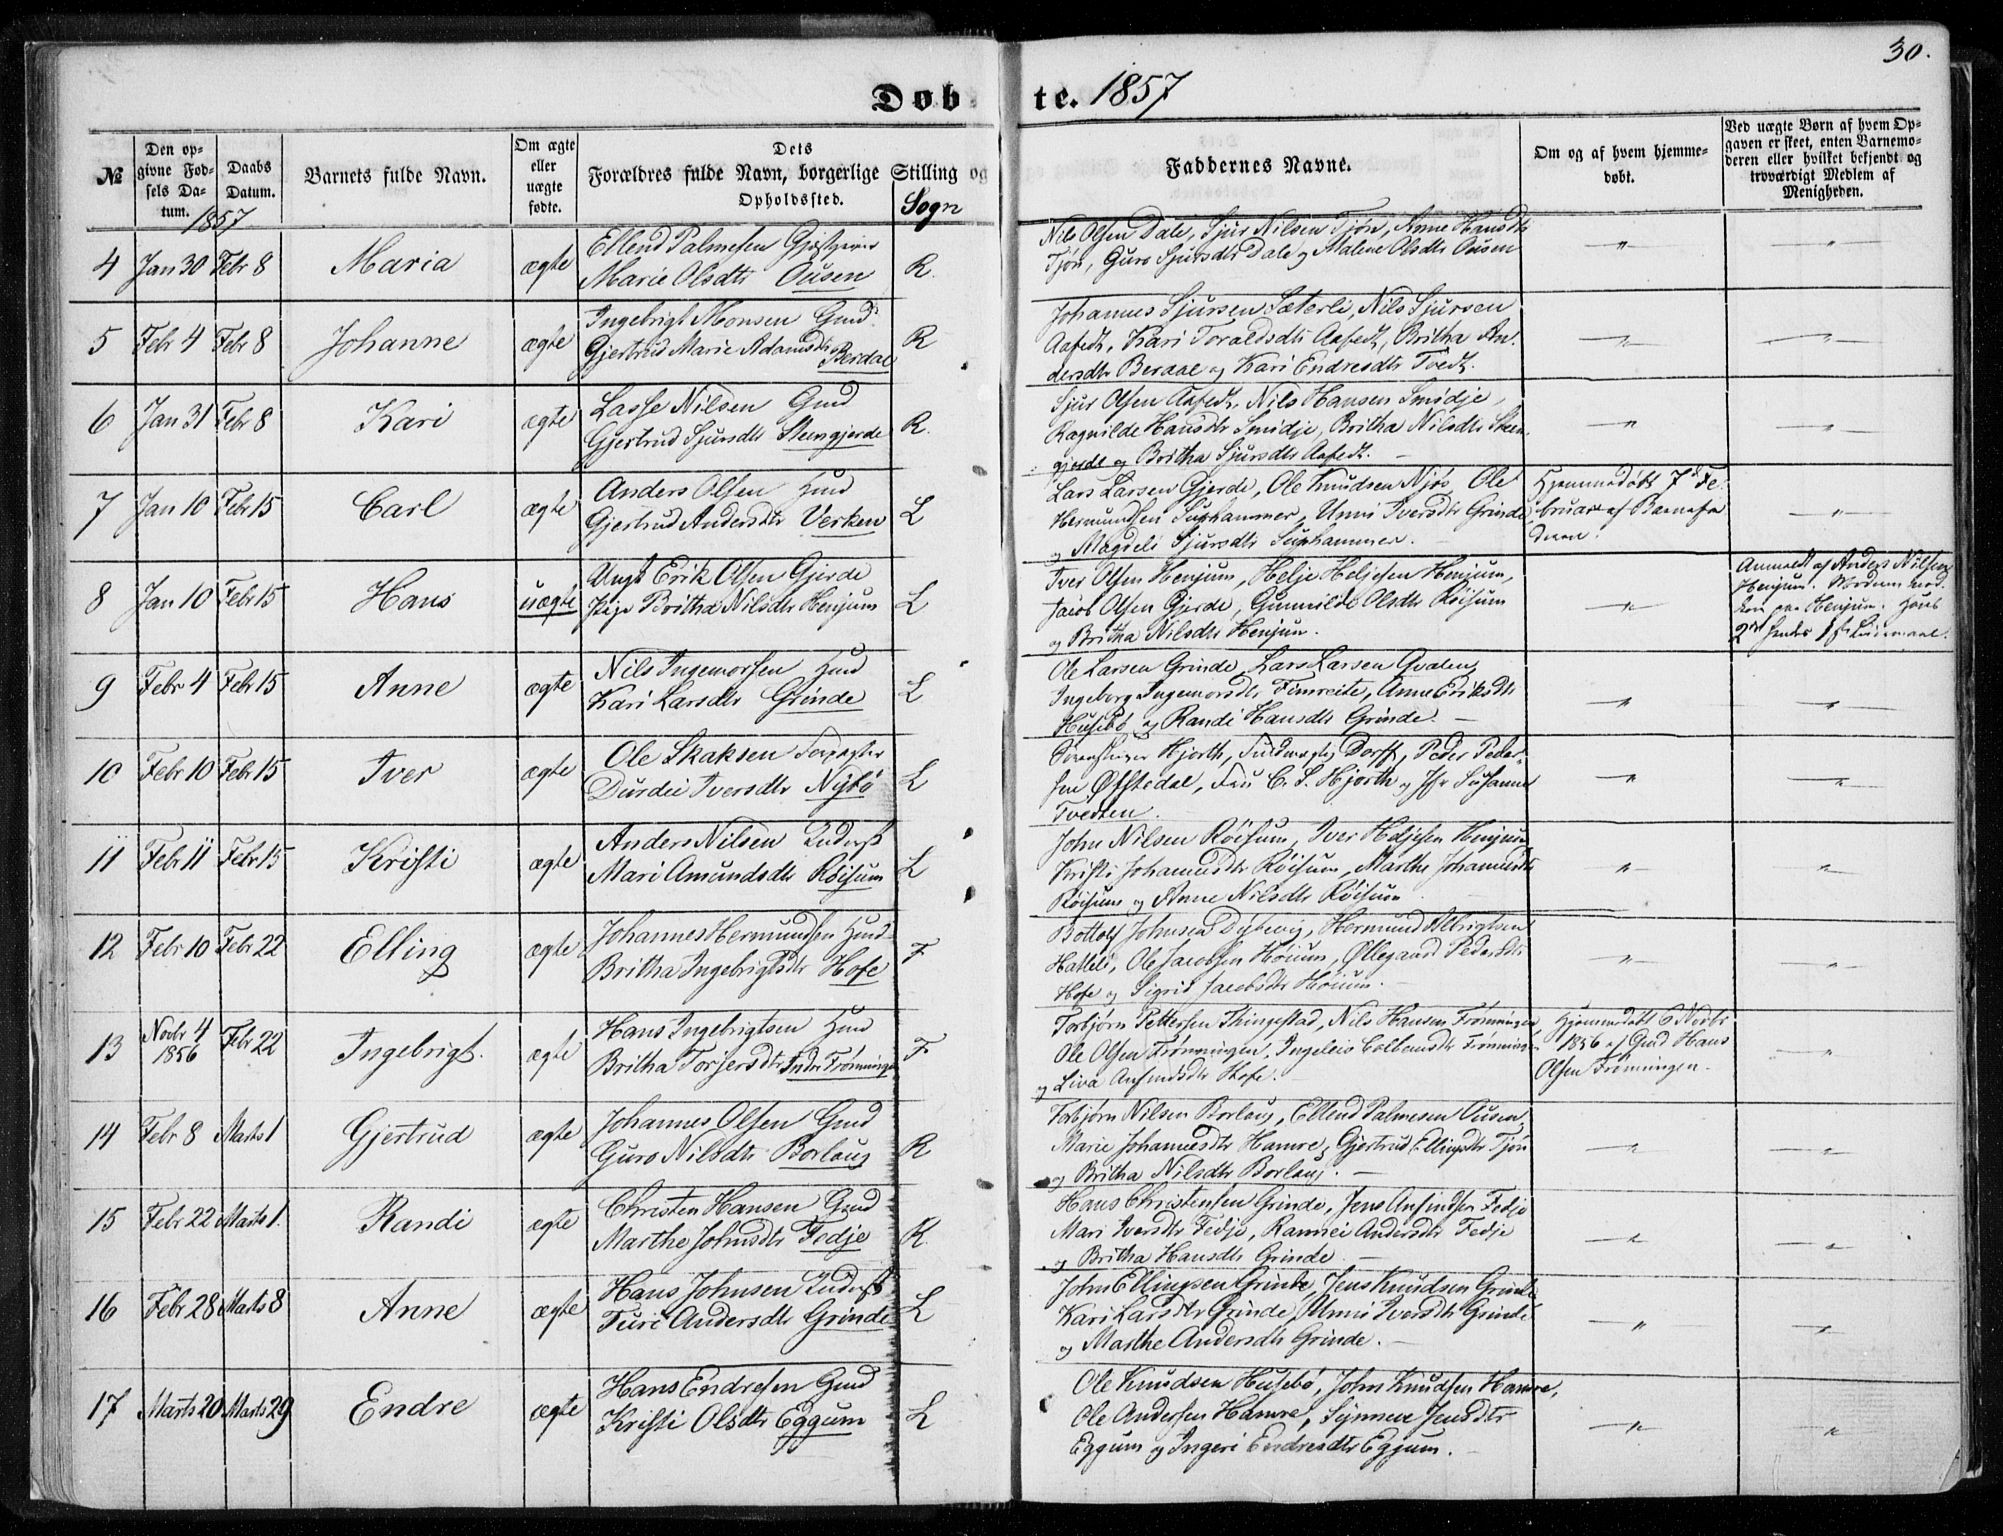 30.
Døbte. 1857
№
Den opgivne Fødsels Datum.
Daabs Datum.
1857
Barnets fulde Navn.
Om ægte eller uægte fødte.
Dets Forældres fulde Navn, borgerlige Stilling og Opholdssted.
Sogn
Faddernes Navne.
Om og af hvem hjemmedøbt.
Ved uægte Børn af hvem Opgaven er skeet, enten Barnemoderen eller hvilket bekjendt og troværdigt Medlem af Menigheden.
4 Jan 30 Febr 8 Maria ægte
Ellend Palmesen
Marie Olsdtr Ousen R.
Nils Olsen Dale, Sjur Nilsen Tjøn, Anne Hansdtr
Tjøn, Guro Sjursdtr Dale og Malene Olsdtr Ousen
5 Febr 4 Febr 8 Johanne ægte
Ingebrigt Monsen Gmd
Gjertrud Marie Adamsdtr Berdal R
Johannes Sjursen Sæterli, Nils Sjursen
Aafedt, Kari Toraldsdtr Aafedt, Britha An-
dersdtr Berdal og Kari Endresdtr Tvedt.
6 Jan 31 Febr 8 Kari ægte
Lasse Nilsen Gmd
Gjertrud Sjursdtr Steengjerde R.
Sjur Olsen Aafedt, Nils Hansen Smidje,
Ragnilde Hansdtr Smidje, Britha Nilsdtr Steen-
gjerde og Britha Sjursdtr Aafedt.
7 Jan 10 Febr 15 Carl ægte
Anders Olsen Hmd
Gjertrud Andersdtr Verken L
Lars Larsen Gjerde, Ole Knudsen Njøs, Ole
Hermundsen Suphammer, Unni Iversdtr Grinde
og Magdeli Sjursdtr Suphammer.
Hjemmedøbt 7de Fe-
bruar af Barnefa
deren.
8 Jan 10 Febr 15 Hans uægte
Ungk Erik Olsen Gjerde
Pige Britha Nilsdtr Henjum L
Iver Olsen Henjum, Helje Heljesen Henjum,
Jacob Olsen Gjerde, Gunnilde Olsdtr Røisum
og Britha Nilsdtr Henjum.
Anmeldt af Anders Nilsen
Henjum. Moderen
paa Henjum. Hans
2det hendes 1ste Leiermaal.
9 Febr 4 Febr 15 Anne ægte
Nils Ingemorsen Hmd
Kari Larsdtr Grinde L
Ole Larsen Grinde, Lars Larsen Qvalen,
Ingeborg Ingemorsdtr Fimreite, Anne Eriksdtr
Husebø og Randi Hansdtr Grinde.
10 Febr 10 Febr 15 Iver ægte
Ole Skaksen Forpagter
Durdei Iversdtr Nybø L
Sorenskriver Hjorth, Fuldmægtig Dorff, Peder Peder-
sen Øfstedal, Fru C. S. Hjorth og Jfr Susanne
Tvedten.
11 Febr 11 Febr 15 Kristi ægte
Anders Nilsen Inderst
Mari Amundsdtr Røisum L
John Nilsen Røisum, Iver Heljesen Henjum
Kristi Johannesdtr Røisum, Marthe Johannesdtr
Røisum og Anne Nilsdtr Røisum
12 Febr 10 Febr 22 Elling ægte
Johannes Hermundsen Hmd
Britha Ingebrigtsdtr Hofe F
Bottolf Johnsen Dybevig, Hermund Albrigtsen
Hatlelid, Ole Jacobsen Høium, Øllegaard Pedersdtr
Hofe og Sigrid Jacobsdtr Høium.
13 Novbr 4 1856 Febr 22 Ingebrigt. ægte
Hans Ingebrigtsen Hmd
Britha Torjersdtr Indre Frønningen F
Torbjørn Pettersen Thingestad, Nils Hansen Frønningen
Ole Olsen Frønningen, Ingeleiv Colbensdtr Frønningen
og Liva Anfindsdtr Hofe.
Hjemmedøbt 6 Novbr
1856 af Gmd Hans
Olsen Frønningen.
14 Febr 8 Marts 1 Gjertrud ægte
Johannes Olsen Gmd
Guro Nilsdtr Borlaug R
Torbjørn Nilsen Borlaug, Ellend Palmesen Ousen,
Marie Johannesdtr Hamre, Gjertrud Ellingsdtr Tjøn
og Britha Nilsdtr Borlaug.
15 Febr 22 Marts 1. Randi ægte
Christen Hansen Gmd
Marthe Johnsdtr Fedje R.
Hans Christensen Grinde, Jens Anfindsen Fedje
Mari Iversdtr Fedje, Rannei Andersdtr Fedje
og Britha Hansdtr Grinde
16 Febr 28 Marts 8 Anne ægte
Hans Johnsen Inderst
Turi Andersdtr Grinde L
John Ellingsen Grinde, Jens Knudsen Grinde
Kari Larsdtr Grinde, Unni Iversdtr Grinde
og Marthe Andersdtr Grinde.
17 Marts 20 Marts 29 Endre ægte
Hans Endresen Gmd
Kristi Olsdtr Eggum L
Ole Knudsen Husebø, John Knudsen Hamre,
Ole Andersen Hamre, Synneve Jensdtr
Eggum og Ingeri Endresdtr Eggum.